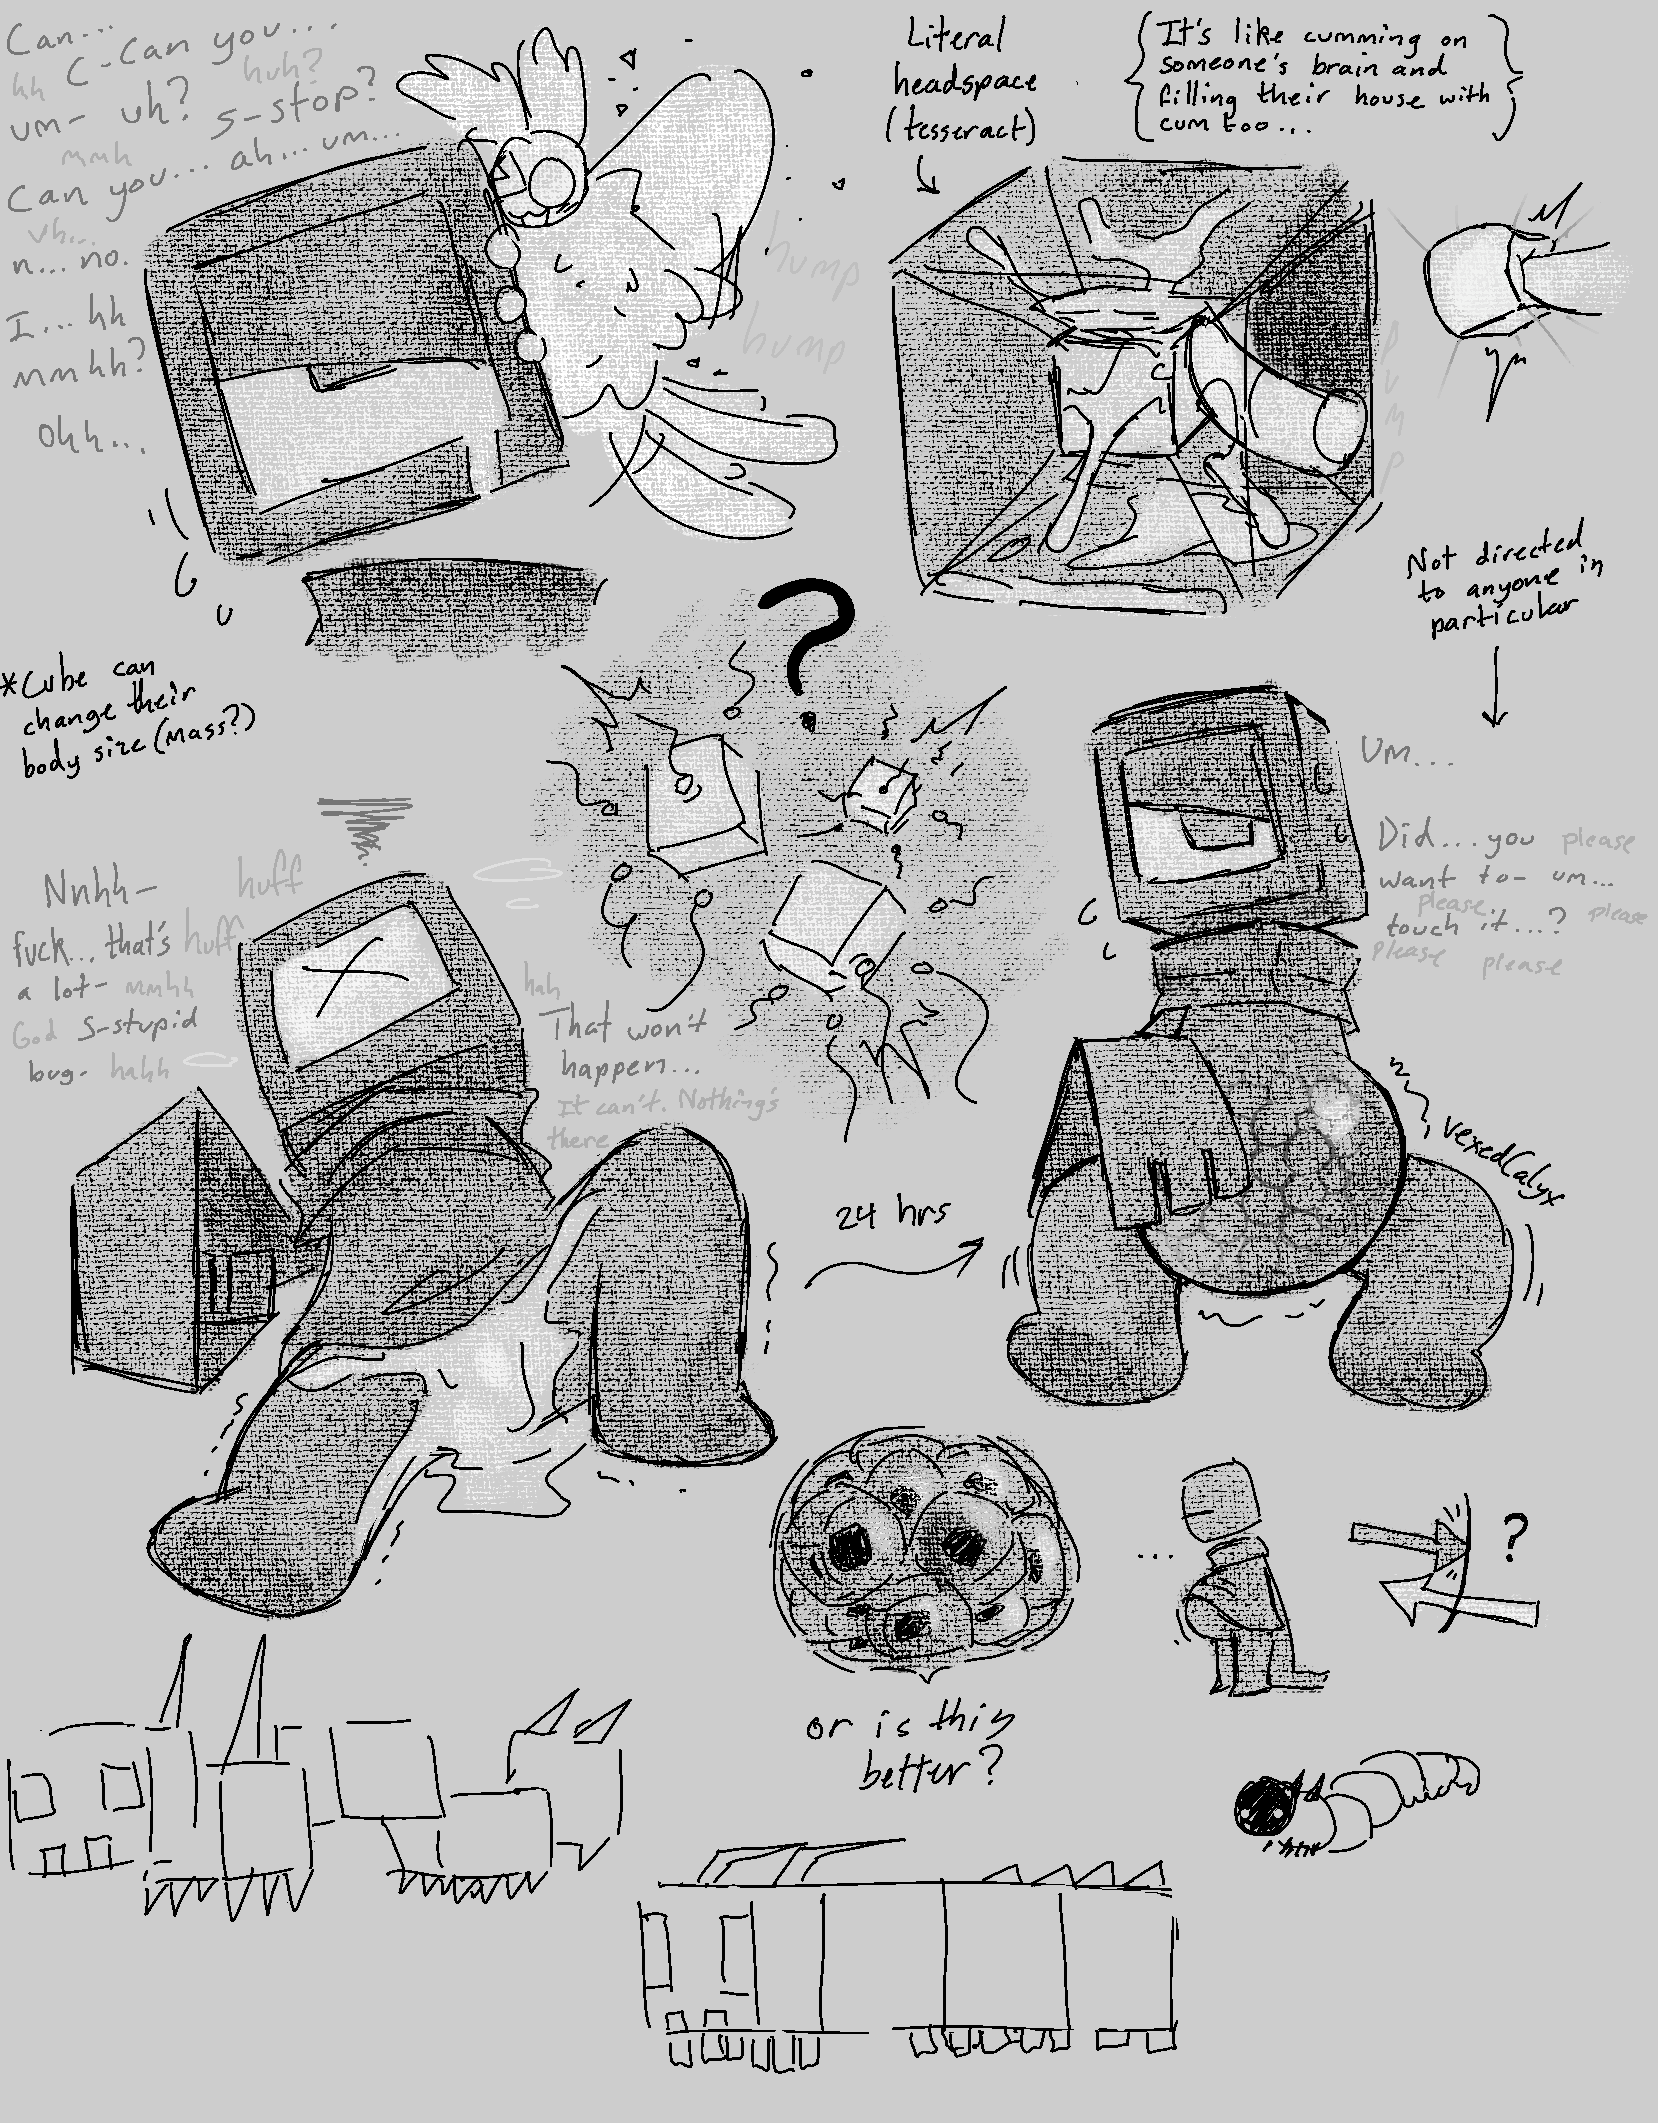 Can...
hh C-Can you...
um- uh? huh?
s-stop?
mmh
Can you... ah... um...
uh...
n... no.
I... hh
mmhh?
Ohh...
hump
hump
Literal
headspace
(tesseract)
It's like cumming on
someone's brain and
filling their house with
cum too...
PUMP
*Cube can
change their
body size (mass?)
?
Not directed
to anyone in
particular
Um...
Did... you please
want to- um...
please
touch it...? please
please please
Nnhh- huff
fuck... that's huff
a lot- mmhh
God s-stupid
bug- hahh
hah
That won't
happen...
It can't. Nothing's
there
24 hrs
vexedCalyx
...
?
or is this
better?